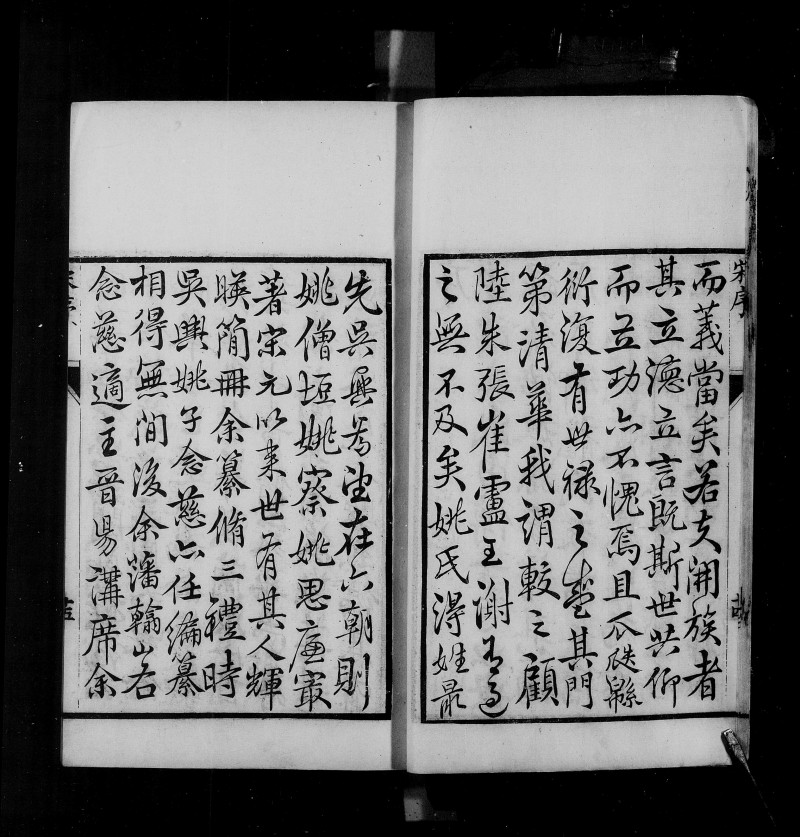 宋序
而義當矣若夫開族者
其立德立言既斯世共仰
而立功亦不愧焉且瓜瓞緜
衍復有世祿之其門
第清華我謂較之顧
陸朱張崔盧王謝有過
之無不及矣姚氏得姓最
先吳興為望在六朝則
姚僧垣姚察姚思廉最
著宋元以來世有其人輝
暎簡冊余纂脩三禮時
吳興姚子念慈亦任編纂
相得無間後余藩翰山右
念慈適主晉昜講席余